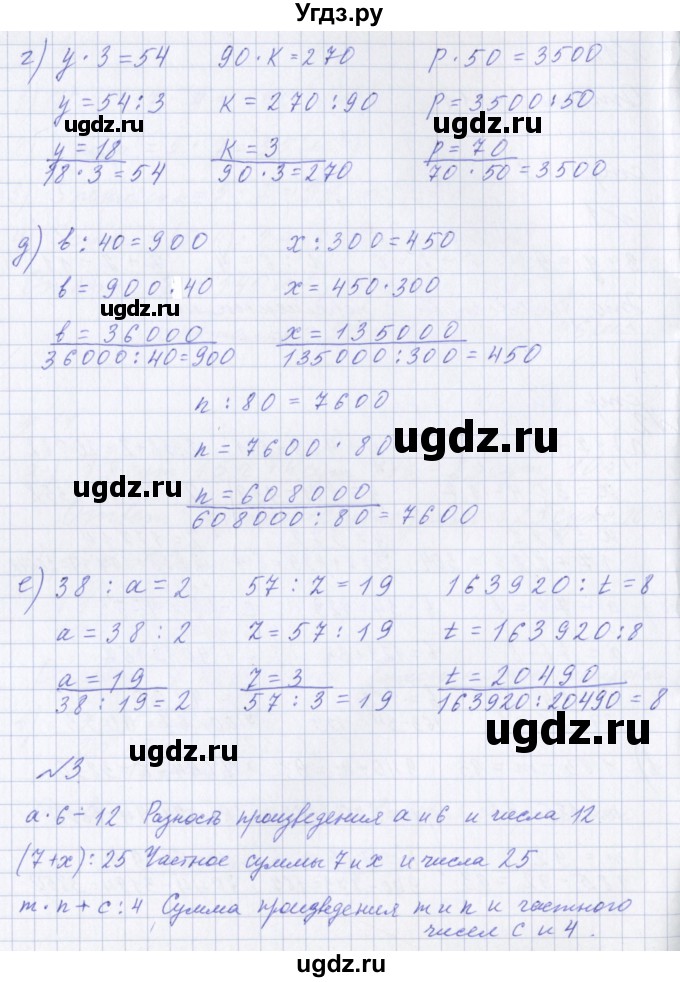 Угдз.ру
г) y · 3 = 54 90 · K = 270 P · 50 = 3500
y = 54 : 3 K = 270 : 90 P = 3500 : 50
ugdz.ru ugdz.ru
y = 18 K = 3 P = 70
18 · 3 = 54 90 · 3 = 270 70 · 50 = 3500
д) в : 40 = 900 x : 300 = 450
в = 900 · 40 x = 450 · 300
ugdz.ru
в = 36000 x = 135000
36000 : 40 = 900 135000 : 300 = 450
n : 80 = 7600
ugdz.ru
n = 7600 · 80
ugdz.ru
n = 608000
608000 : 80 = 7600
е) 38 : a = 2 57 : z = 19 163920 : t = 8
a = 38 : 2 z = 57 : 19 t = 163920 : 8
a = 19 z = 3 t = 20490
38 : 19 = 2 57 : 3 = 19 163920 : 20490 = 8
ugdz.ru ugdz.ru
№3
a · 6 - 12 Разность произведения a и 6 и числа 12
(7 + x) : 25 Частное суммы 7 и x и числа 25
ugdz.ru
m · n + c : 4 Сумма произведения m и n и частного
чисел c и 4.
ugdz.ru